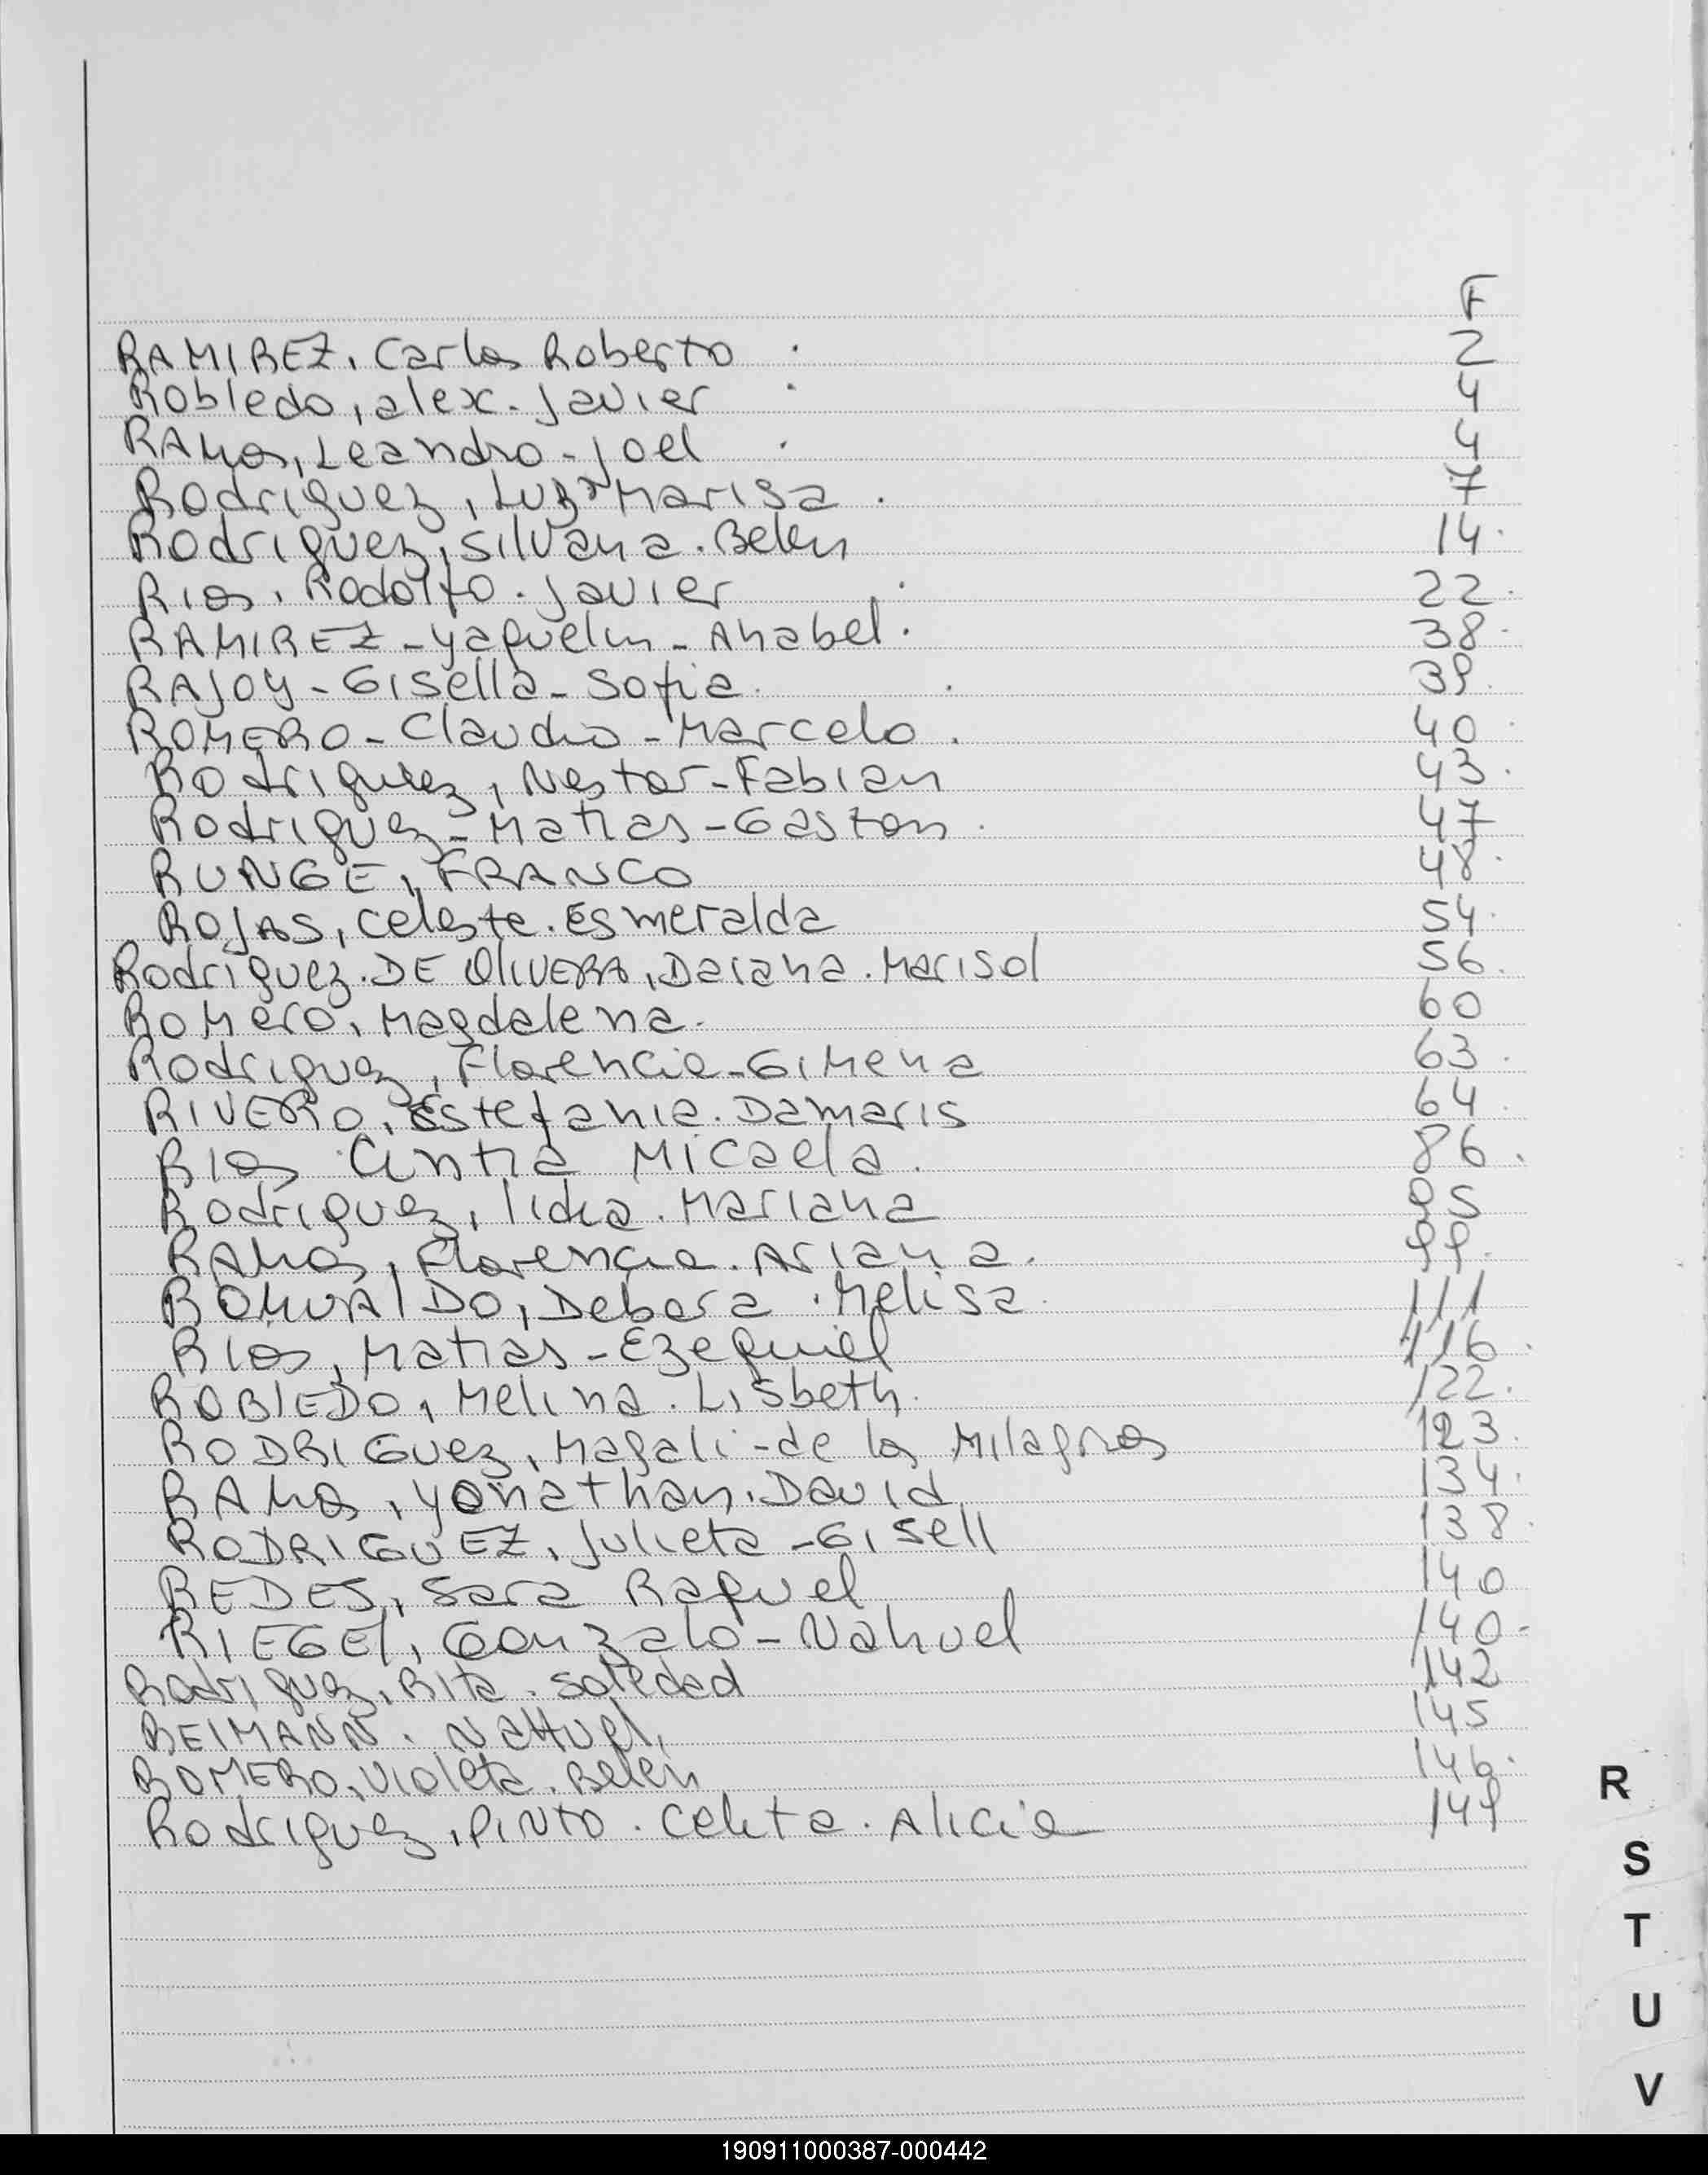 F
RAMIREZ, Carlos Roberto . 2
Robledo, alex. Javier . 4
RAMos, Leandro - Joel . 4
Rodriguez, Luz Marisa . 7
Rodriguez, Silvana. Belen 14.
Rios, Rodolfo. Javier . 22.
RAMIREZ - Yaquelin - Anabel. 38.
RAJOY - Gisella - Sofia . 39.
ROMERO - Claudio - Marcelo . 40.
Rodriguez, Nestor - Fabian 43.
Rodriguez - Matias - Gaston . 47
RUNGE, FRANCO 48.
ROJAS, Celeste. Esmeralda 54.
Rodriguez. DE OlIVERA, Daiana. Marisol 56.
Romero, Magdalena. 60
Rodriguez, Florencia - Gimena 63.
RIVERO, Estefania. Damaris 64.
Rios Cintia Micaela . 86.
Rodriguez, lidia. Mariana 95
RAMos, Florencia. Ariana. 99.
ROMUAlDO, Debora . Melisa 111
Rios, Matias - Ezequiel 116.
ROBlEDO, Melina. Lisbeth. 122.
RODRIGuez, Magali - de los Milagros 123.
RAMos, Yonathan. David 134.
RODRIGUEZ, Julieta - Gisell 138.
REDES, Sara Raquel 140
RIEGEl, Gonzalo - Nahuel 140-
Rodriguez, Rita. Soledad 142
REIMANN. NaHuel, 145
ROMERO, Violeta. Belen 146.
Rodriguez, PINTO. Celita. Alicia 149
R
S
T
U
V
190911000387-000442